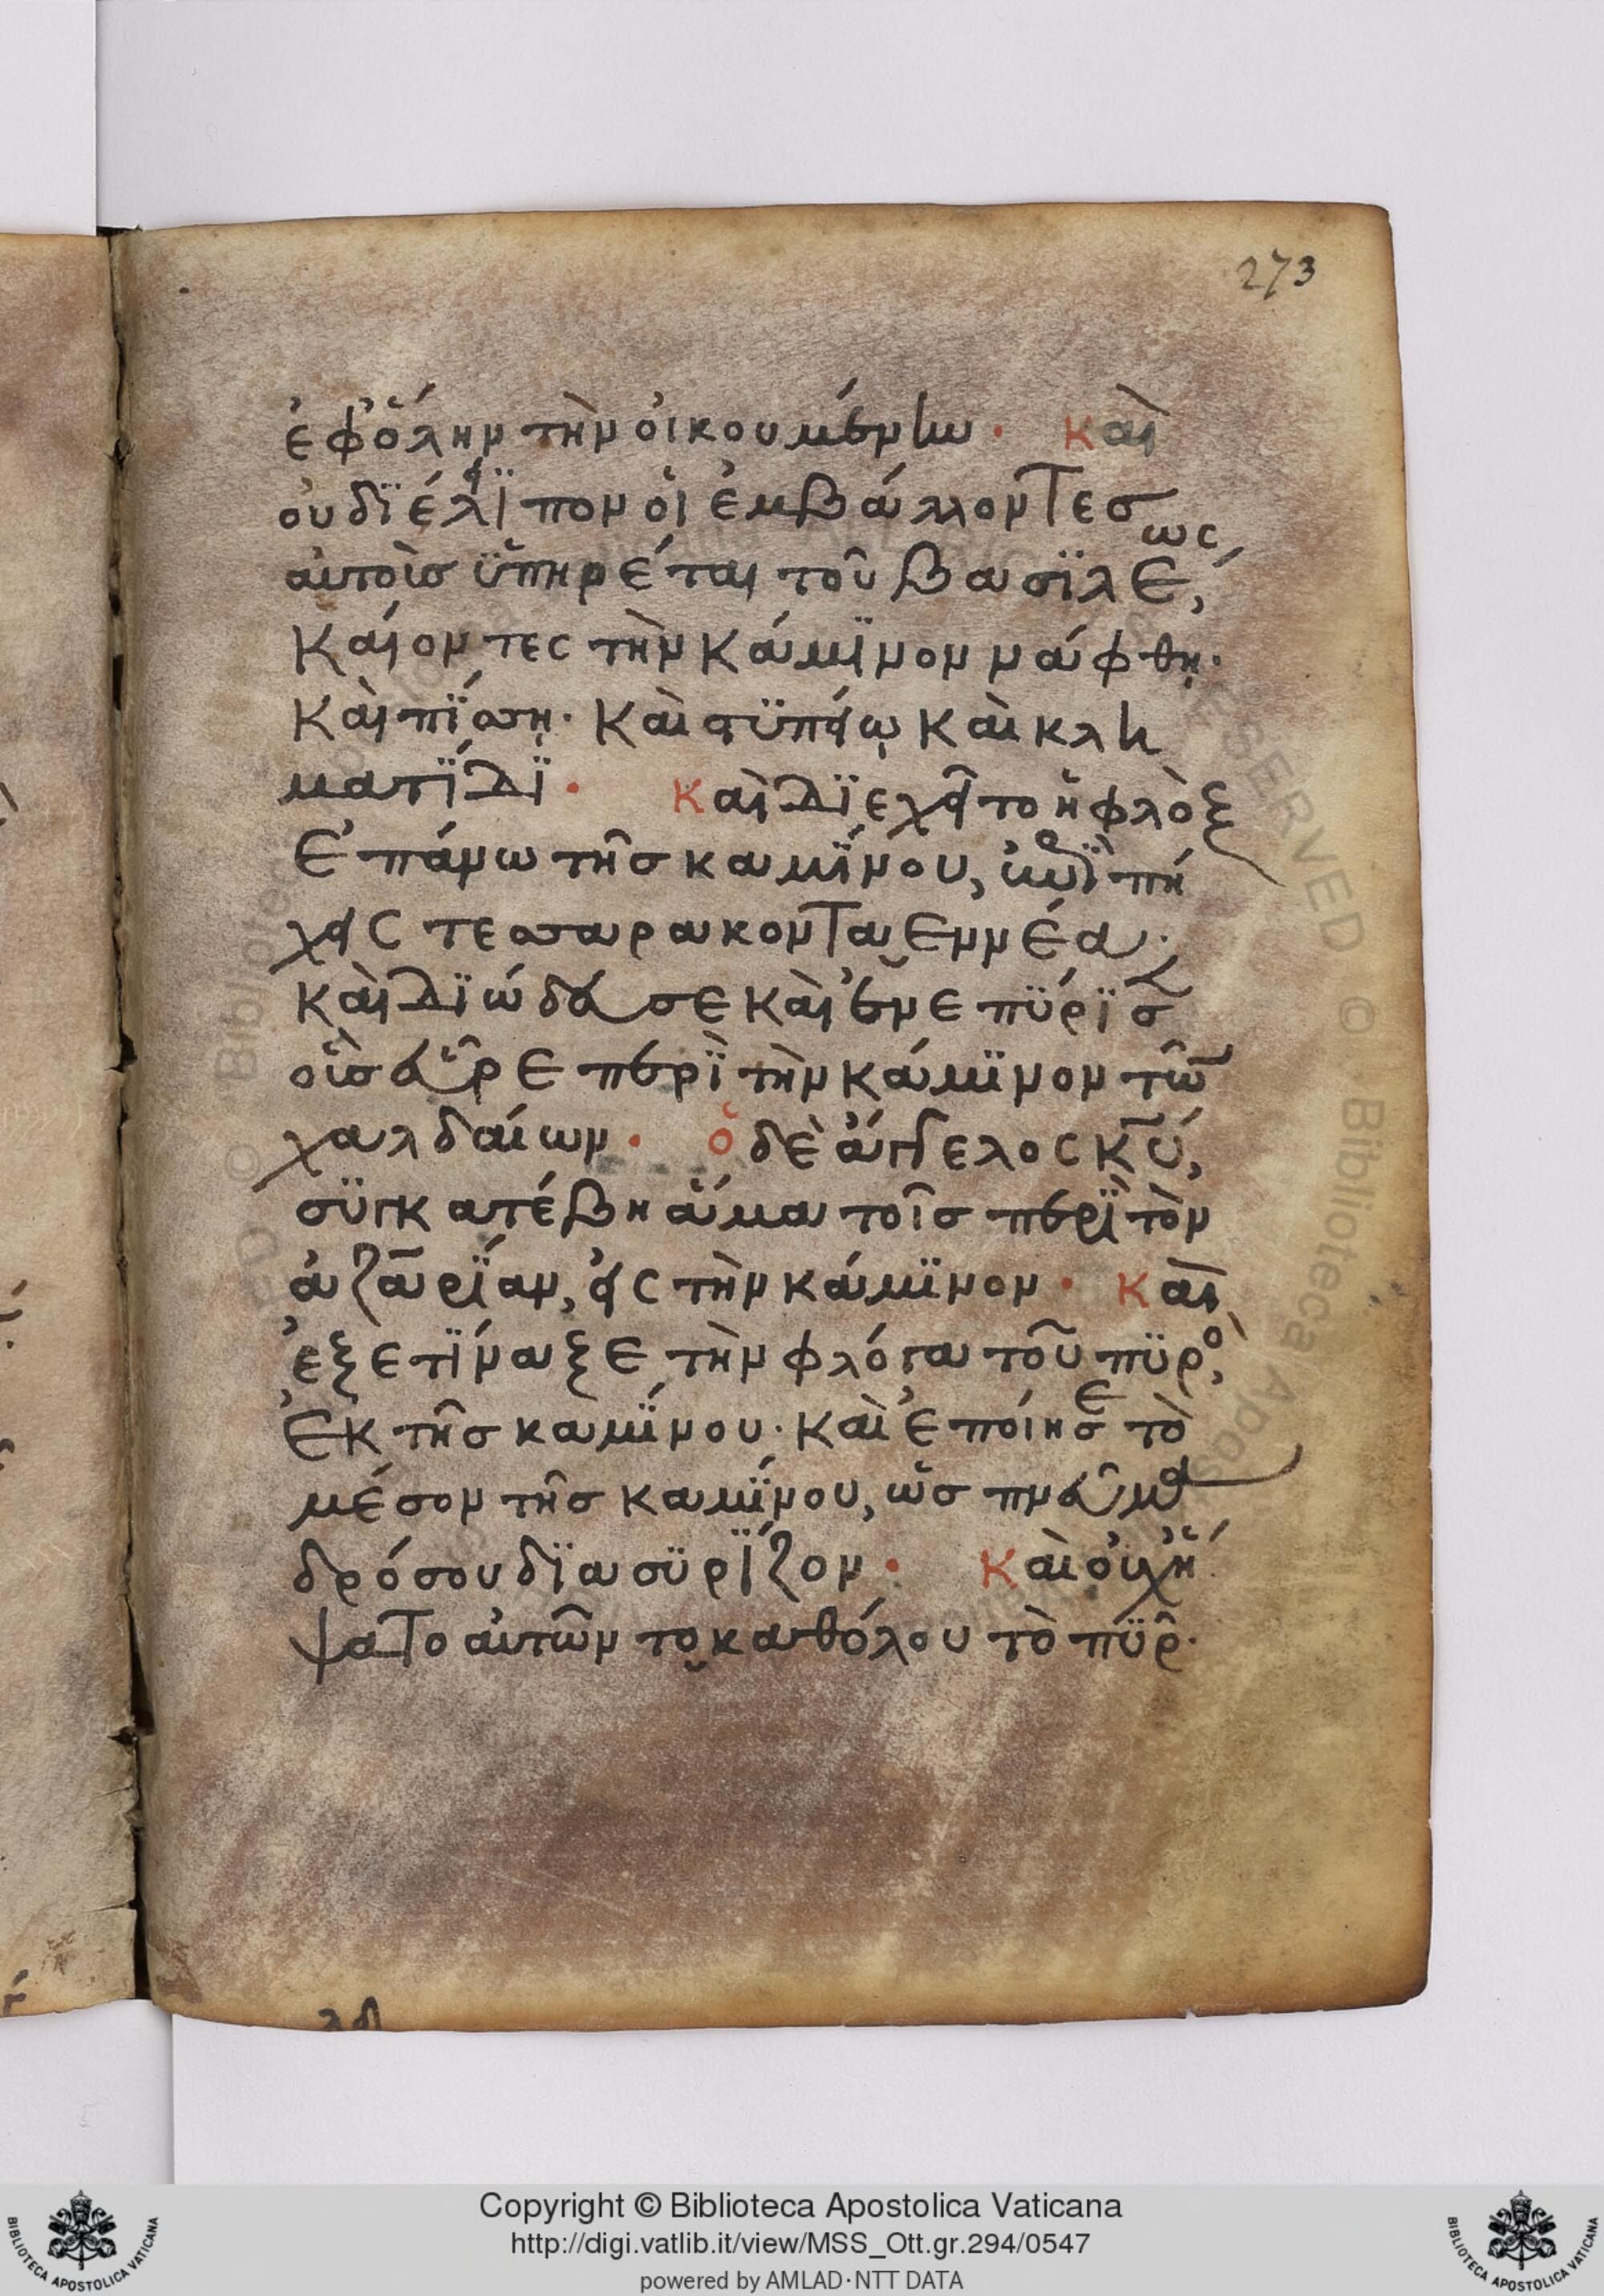 273
ἐφ' ὅλην τὴν οἰκουμένην. Καὶ
οὐ διέλειπον οἱ ἐμβάλλοντες
αὐτοὺς ὑπηρέται τοῦ βασιλέως,
καίοντες τὴν κάμινον νάφθῃ·
καὶ πίσσῃ· καὶ στϋππείῳ καὶ κλη
ματίδι. Καὶ διεχεῖτο ἡ φλὸξ
ἐπάνω τῆς καμίνου, ἐπὶ πή
χεις τεσσαρακονταεννέα·
καὶ διώδευσε καὶ ἐνεπύρισεν
οὓς εὗρε περὶ τὴν κάμινον τῶν
χαλδαίων. ὁ δὲ ἄγγελος κ̅υ̅,
συγκατέβη ἅμα τοῖς περὶ τὸν
ἀζαρίαν, εἰς τὴν κάμινον. Καὶ
ἐξετίναξε τὴν φλόγα τοῦ πυρὸς,
ἐκ τῆς καμίνου· καὶ ἐποίησε τὸ
μέσον τῆς καμίνου, ὡς πνεῦμα
δρόσου διασυρίζον. Καὶ οὐχ ἥ
ψατο αὐτῶν τοκαθόλου τὸ πῦρ·
BIBLIOTECA APOSTOLICA VATICANA
Copyright © Biblioteca Apostolica Vaticana
http://digi.vatlib.it/view/MSS_Ott.gr.294/0547
powered by AMLAD·NTT DATA
BIBLIOTECA APOSTOLICA VATICANA